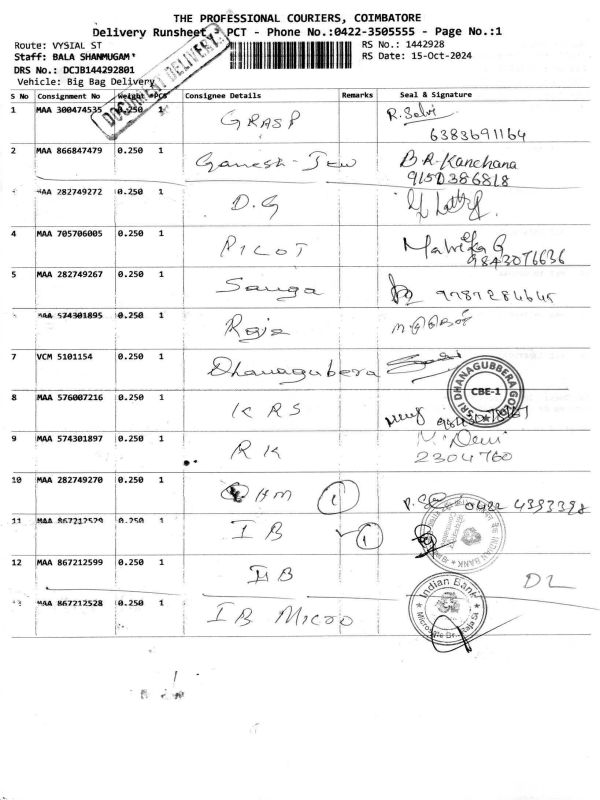 THE PROFESSIONAL COURIERS, COIMBATORE
Delivery Runsheet PCT - Phone No.:0422-3505555 - Page No.:1
Route: VYSIAL ST RS No.: 1442928
Staff: BALA SHANMUGAM RS Date: 15-Oct-2024
DRS No.: DCJB144292801
Vehicle: Big Bag Delivery
DOCUMENT DELIVERY
S No Consignment No Weight PCS Consignee Details Remarks Seal & Signature
1 MAA 300474535 0.250 1 GRASP R. Selvi
6383691164
2 MAA 866847479 0.250 1 Ganesh - Jew B.R. Kanchana
9150386818
MAA 282749272 0.250 1 D.G
4 MAA 705706005 0.250 1 PILOT
9843076636
5 MAA 282749267 0.250 1 Sanga 9787284645
MAA 574301895 0.250 1 Raja
7 VCM 5101154 0.250 1 Dhanagubera
SRI DHANAGUBBERA GOLD
CBE-1
8 MAA 576007216 0.250 1 KRS
9 MAA 574301897 0.250 1 RK M. Devi
2304760
10 MAA 282749270 0.250 1 HM 1 0422 4393398
11 MAA 867212529 0.250 1 IB 1
INDIAN BANK
12 MAA 867212599 0.250 1 IB DL
MAA 867212528 0.250 1 IB Micro
Indian Bank